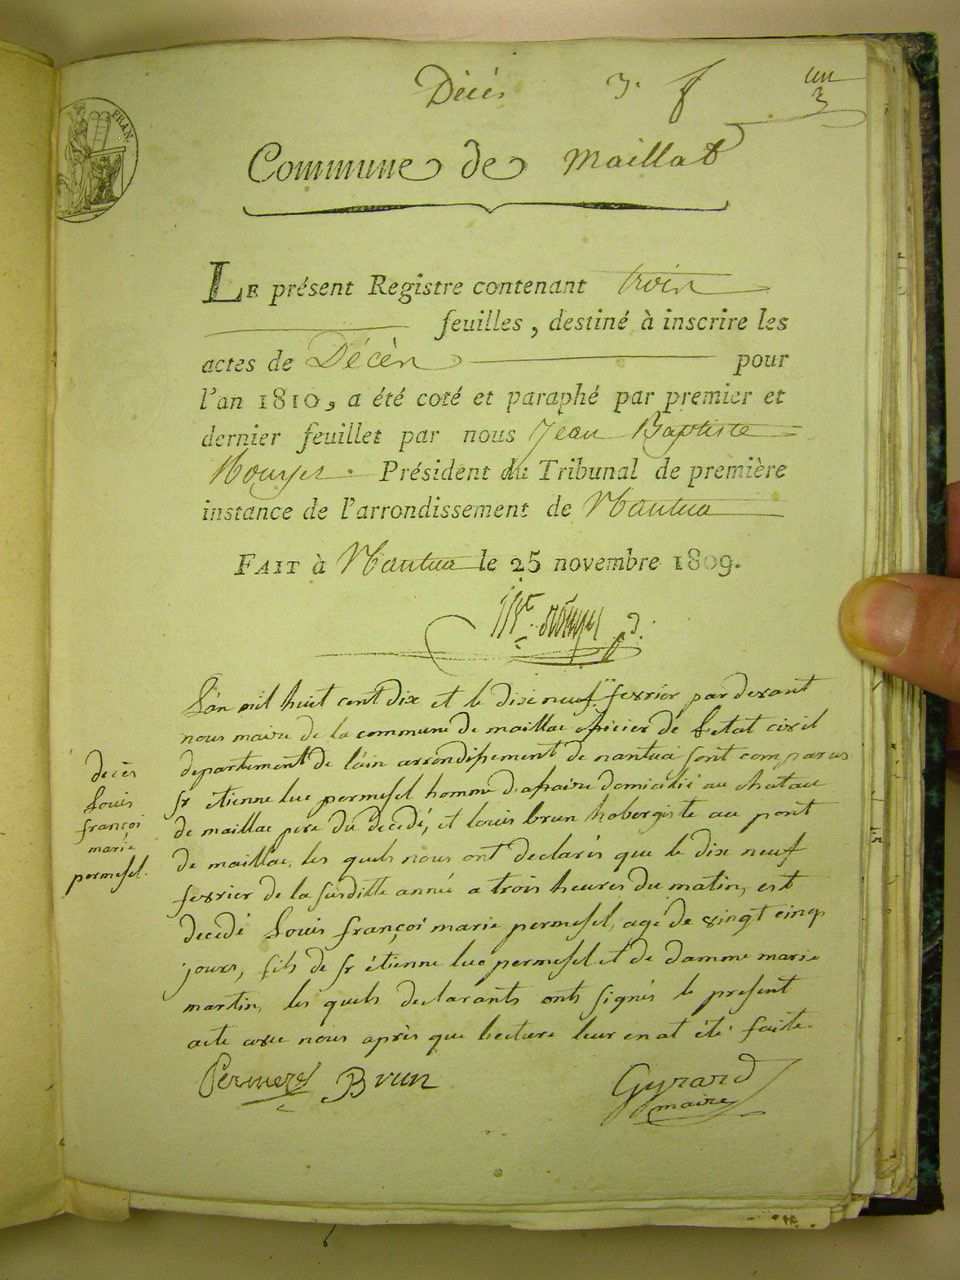 Décès 3. un
3
FRAN
Commune de Maillat
LE présent Registre contenant trois
feuilles, destiné à inscrire les
actes de Décès pour
l'an 1810, a été coté et paraphé par premier et
dernier feuillet par nous Jean Baptiste
Rouyer. Président du Tribunal de première
instance de l'arrondissement de Nantua
FAIT à Nantua le 25 novembre 1809.
L'an mil huit cent dix et le dix neuf fevrier par devant
nous maire de la commune de maillac oficier de l'etat civil
departement de l'ain arrondissement de nantua sont comparus
sr étienne luc permesel homme d'afaire domicilié au chatau
de maillac pere du decedé, et louis brun hobergiste au pont
de maillac, les quels nous ont declarés que le dix neuf
fevrier de la susditte année a trois heures du matin, est
decedé Louis françoi marie permesel, agé de vingt cinq
jours, fils de sr étienne luc permesel et de damme marie
martin, les quels declarants onts signés le present
acte avec nous après que lecture leur en at été faite.
decès
Louis
françoi
marie
permesel.
Permezel Brun Gyrard
maire